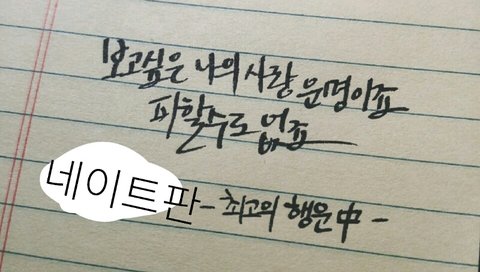 보고싶은 나의 사랑 운명이죠
피할수도 없죠
네이트판
- 최고의 행운 中 -